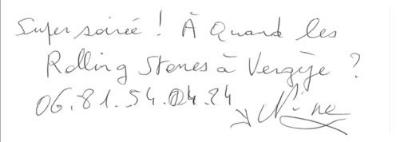 Super soirée ! À quand les
Rolling Stones à Vergèze ?
06.81.54.04.24
Nine